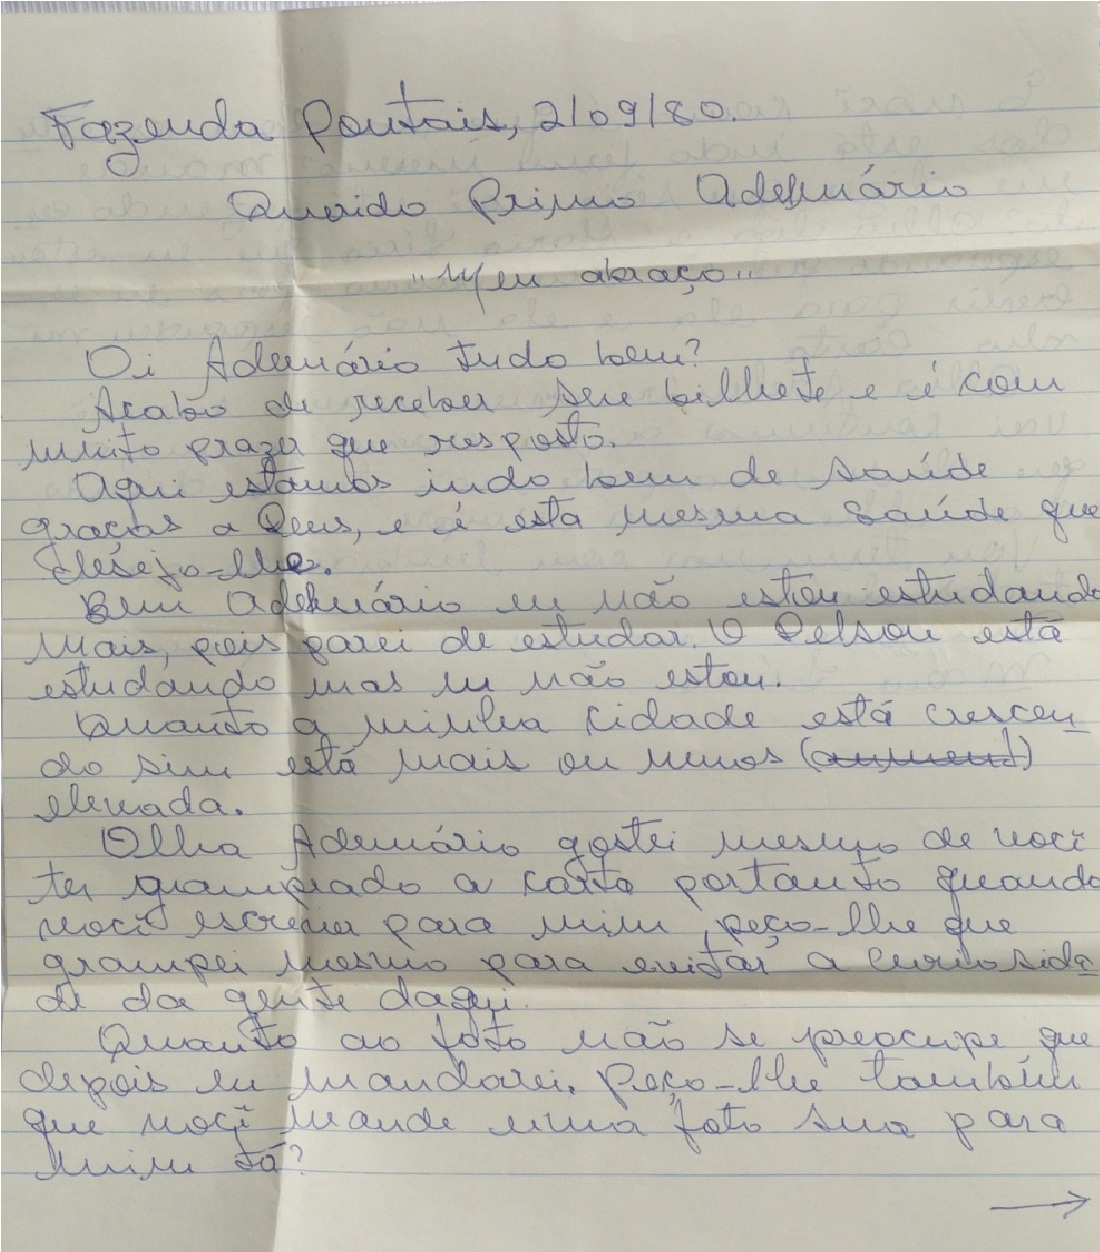 Fazenda Pontais, 2/09/80.
Querido Primo Ademário
"Meu abraço"
Oi Ademário tudo bem?
Acabo de receber seu bilhete e é com
muito prazer que resposto.
Aqui estamos indo bem de saúde
graças a Deus, e é esta mesma saúde que
desejo-lhe.
Bem Ademário eu não estou estudando
mais, pois parei de estudar. O Delson está
estudando mas eu não estou.
Quanto a minha cidade está crescen
do sim está mais ou menos (aument)
elevada.
Olha Ademário gostei mesmo de você
ter grampeado a carta portanto quando
você escrever para mim, peço-lhe que
grampei mesmo para evitar a curiosida
de da gente daqui.
Quanto ao foto não se preocupe que
depois eu mandarei. Peço-lhe também
que você mande uma foto sua para
mim tá?
→